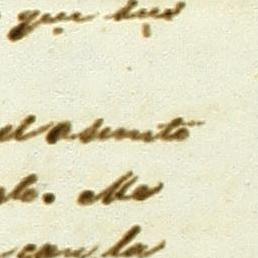 que sus
el asunto
te. Me
con la